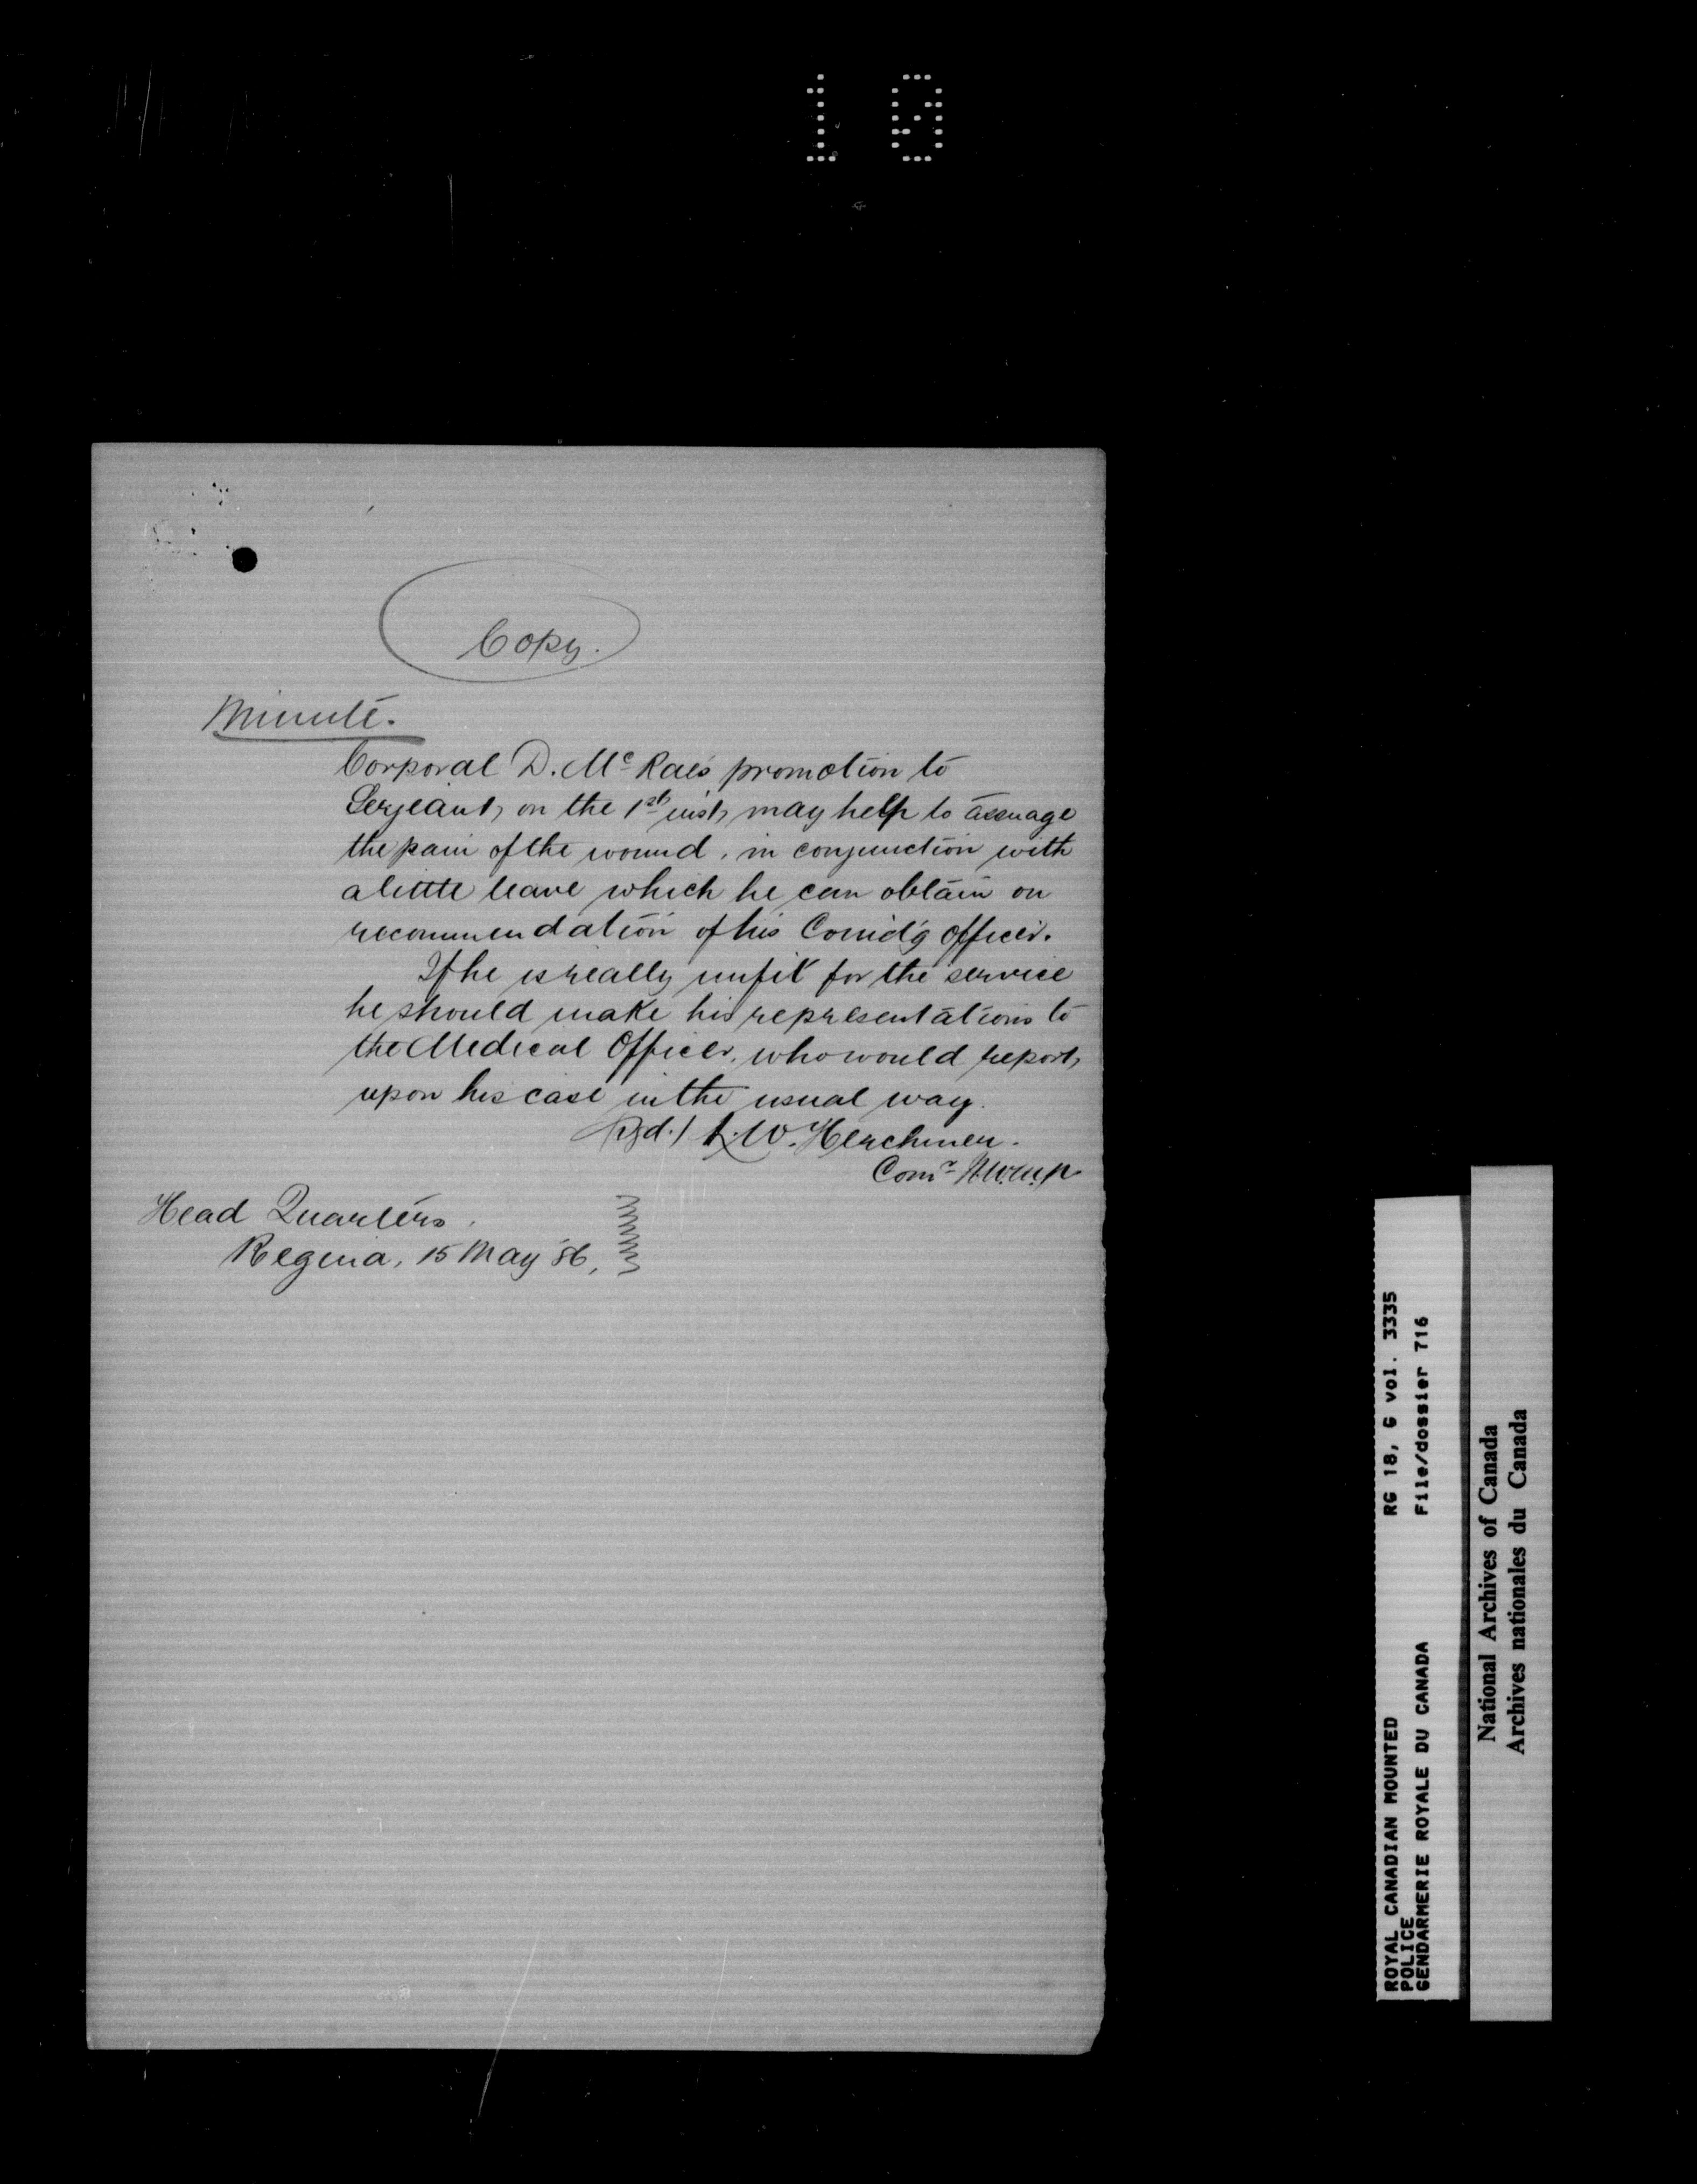 10
Copy.
Minute.
Corporal D. McRae's promotion to
Serjeant, on the 1st inst, may help to assuage
the pain of the wound, in conjunction with
a little leave which he can obtain on
recommendation of his Comd'g Officer.
If he is really unfit for the service
he should make his representations to
the Medical Officer, who would report,
upon his case in the usual way.
(Sgd.) L.W. Herchmer.
Comr N.W.M.P
Head Quarters.
Regina, 15 May '86,
ROYAL CANADIAN MOUNTED RG 18, G vol. 3335
POLICE
GENDARMERIE ROYALE DU CANADA File/dossier 716
National Archives of Canada
Archives nationales du Canada